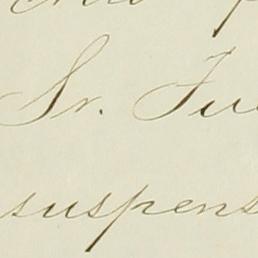 Sr. Fu
suspens